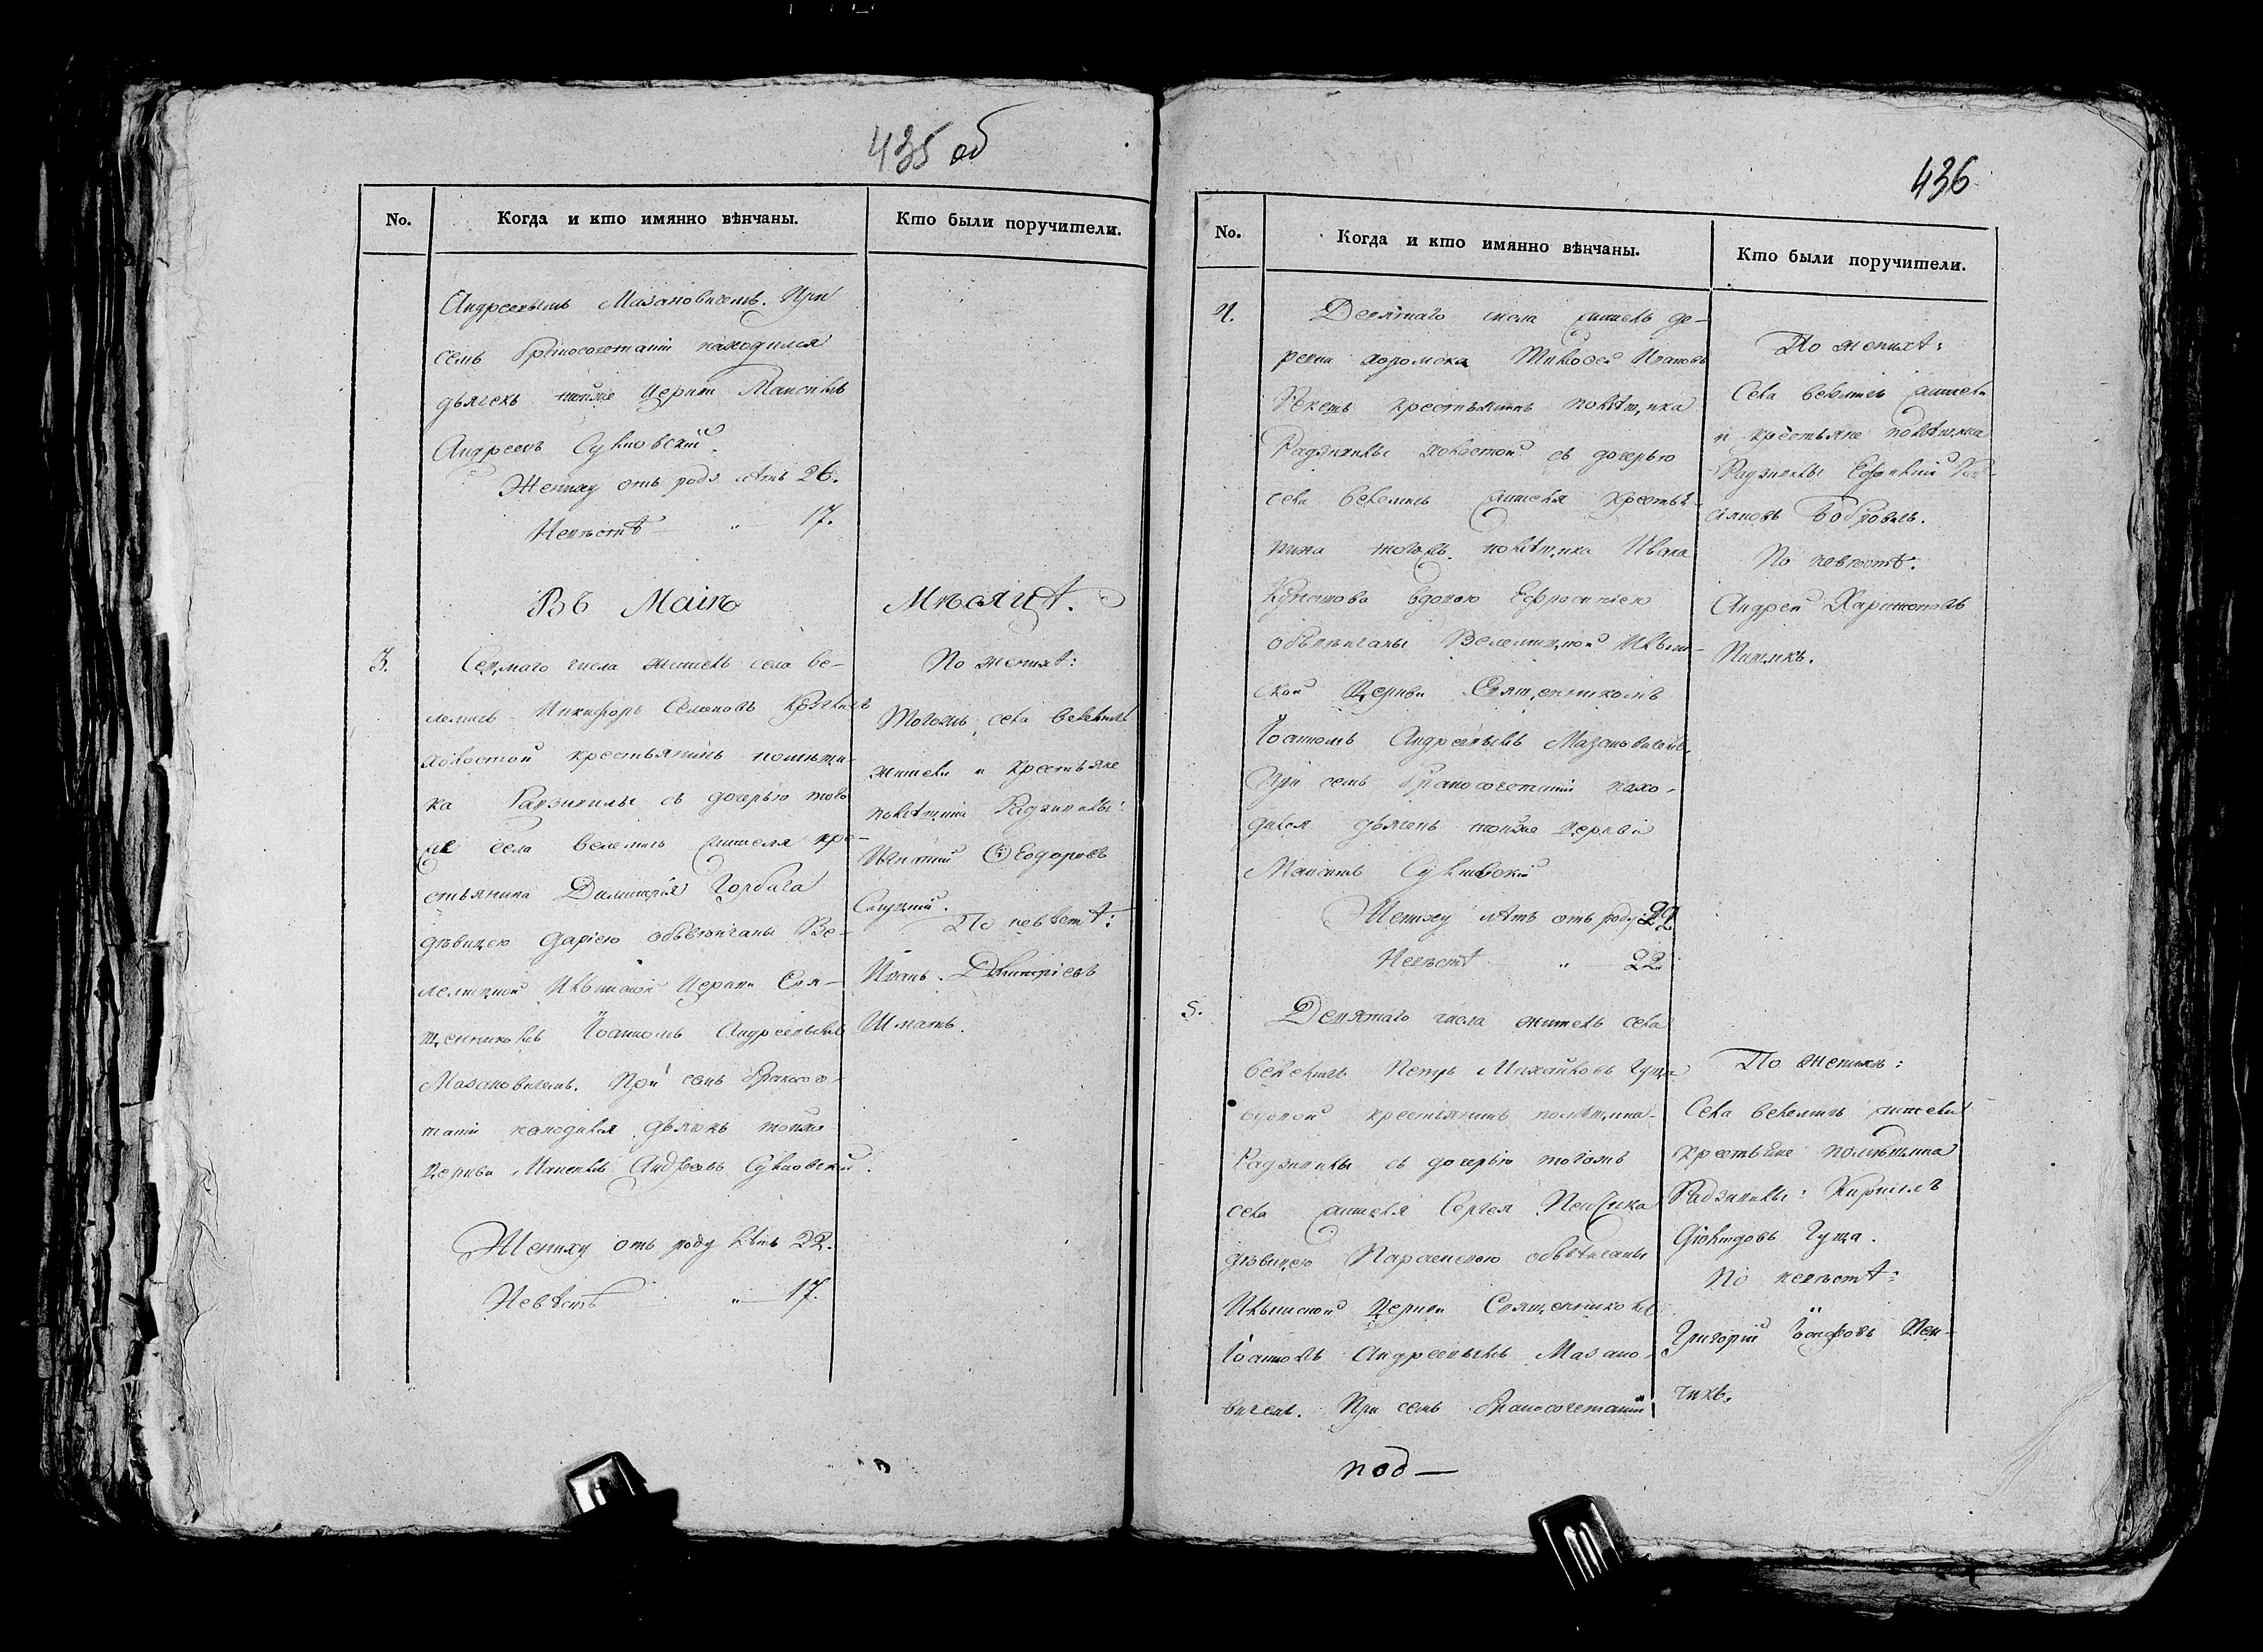 435 об
No.
Когда и кто имянно вѣнчаны.
Кто были поручители.
Андреевымъ Мазановичемъ. При
семъ бракосочетаніи находился
дьячекъ тойже церкви Максимъ
Андреевъ Сулковскій.
Жениху отъ роду лѣтъ 26.
Невѣстѣ " 17.
Въ Маiѣ
Мѣсяцѣ.
3.
Седмаго числа житель села Ве-
лемичь Никифоръ
холостой крестьянинъ помѣщи-
ка Радзивилы съ дочерью того
же села Велемичь жителя кре-
стьянина Димитрія Горбача
дѣвицею Даріею обвѣнчаны Ве-
лемицкой церкви Свя-
щенникомъ Іоанномъ Андреевымъ
Мазановичемъ. При семъ бракосоче-
таніи находился дьячекъ тойже
церкви Максимъ Андреевъ Сулковскій.
Жениху отъ роду лѣтъ 22.
Невѣстѣ " 17.
По женихѣ:
Тогожъ села Велемичь
жители и крестьяне
помѣщика Радзивилы:
Игнатій Ѳеодоровъ
По невѣстѣ:
Иванъ Димитріевъ
Шматъ.
436
No.
Когда и кто имянно вѣнчаны.
Кто были поручители.
4.
Девятаго числа житель де-
ревни Хоромска Тимофей Ивановъ
крестьянинъ помѣщика
Радзивилы холостой съ дочерью
села Велемичь жителя крестья-
нина тогожъ помѣщика Ивана
вдовою Ефросиніею
обвѣнчаны Велемицкой
церкви Священникомъ
Іоанномъ Андреевымъ Мазановичемъ.
При семъ бракосочетаніи нахо-
дился дьячекъ тойже церкви
Максимъ Сулковскій
Жениху лѣтъ отъ роду 29
Невѣстѣ " 22.
По женихѣ:
Села Велемичь жители
и крестьяне помѣщика
Радзивилы
Бобровичь.
По невѣстѣ:
Андрей Харитоновъ
5.
Девятаго числа житель села
Велемичь Петръ Михайловъ Гуща
вдовой крестьянинъ помѣщика
Радзивилы съ дочерью тогожъ
села жителя Сергея
дѣвицею Параскевою обвѣнчаны
церкви Священникомъ
Іоанномъ Андреевымъ Мазано-
вичемъ. При семъ бракосочетаніи
под—
По женихѣ:
Села Велемичь жители
крестьяне помѣщика
Радзивилы: Кириллъ
Гуща.
По невѣстѣ:
Григорій Іосифовъ Пен-
чикъ.